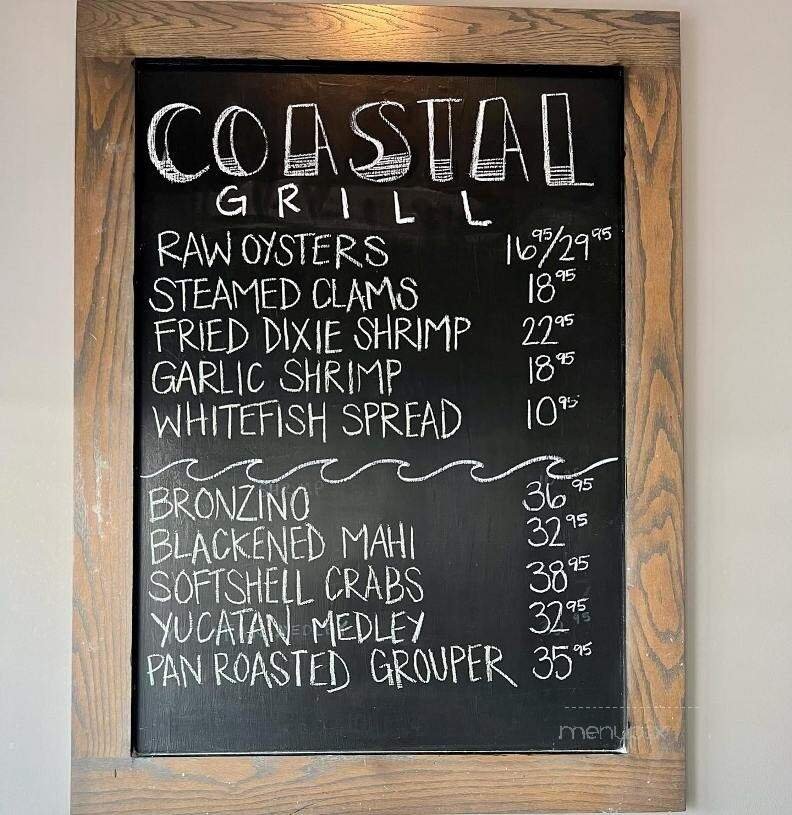 COASTAL
GRILL
RAW OYSTERS 16 95/29 95
STEAMED CLAMS 18 95
FRIED DIXIE SHRIMP 22 95
GARLIC SHRIMP 18 95
WHITEFISH SPREAD 10 95
BRONZINO 36 95
BLACKENED MAHI 32 95
SOFTSHELL CRABS 38 95
YUCATAN MEDLEY 32 95
PAN ROASTED GROUPER 35 95
menupix